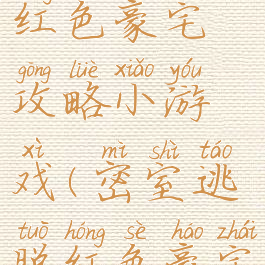 红色豪宅
gōng lüè xiǎo yóu
攻略小游
xì mì shì táo
戏(密室逃
tuō hóng sè háo zhái
脱红色豪宅